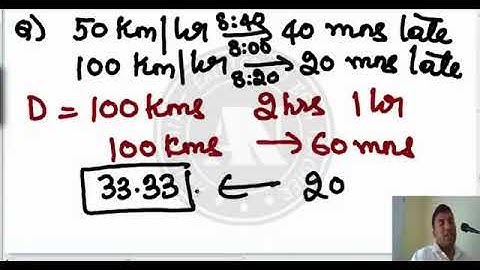 Q) 50 Km/hr 8:40 → 40 mns late
8:00
100 Km/hr → 20 mns late
8:20
D = 100 Kms 2 hrs 1 hr
100 Kms → 60 mns
33.33 ← 20